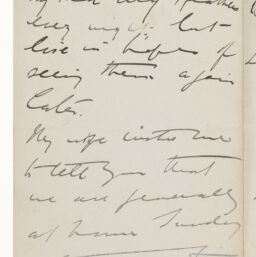 every night but
live in hopes of
seeing them again
later.
My wife wishes me
to tell you that
we are generally
at home Sunday